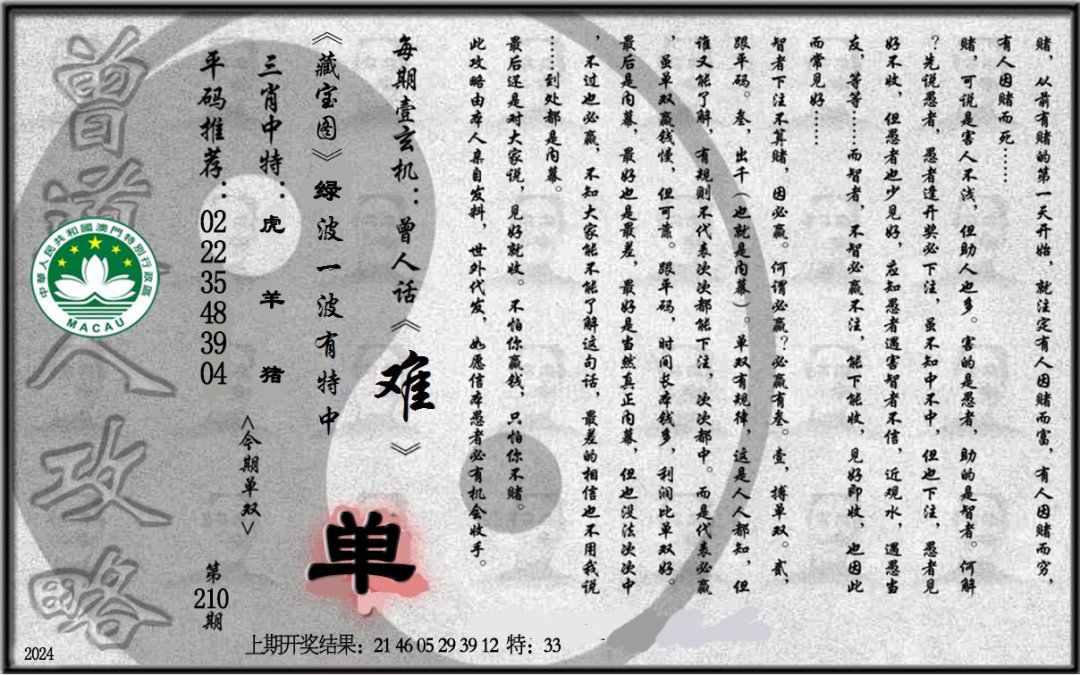 赌，从前有赌的第一天开始，就注定有人因赌而富，有人因赌而穷，
有人因赌而死……
赌，可说是害人不浅，但助人也多。害的是愚者，助的是智者。何解
？先说愚者，愚者逢开奖必下注，虽不知中不中，但也下注，愚者见
好不收，但愚者也少见好，应知愚者遇害智者不信，近观水，遇愚当
友，等等……而智者，不智必赢不注，能下能收，见好即收，也因此
而常见好……
智者下注不算赌，因必赢。何谓必赢？必赢有叁。壹，搏单双。贰，
跟平码。叁，出千（也就是内幕）。单双有规律，这是人人都知，但
谁又能了解，有规则不代表次次都能下注，次次都中。而是代表必赢
，虽单双赢钱慢，但可靠。跟平码，时间长本钱多，利润比单双好。
最后是内幕，最好也是最差，最好是当然真正内幕，但也没法次次中
，不过也必赢，不知大家能不能了解这句话，最差的相信也不用我说
……到处都是内幕。
最后还是对大家说，见好就收。不怕你赢钱，只怕你不赌。
此攻略由本人亲自发料，世外代发，如愿信本愚者必有机会收手。
每期壹玄机：曾人话《难》
《藏宝图》绿波一波有特中
三肖中特：虎 羊 猪
平码推荐：02 22 35 48 39 04
<今期单双>
单
第210期
曾道人攻略
中華人民共和國澳門特別行政區
MACAU
上期开奖结果：21 46 05 29 39 12 特：33
2024